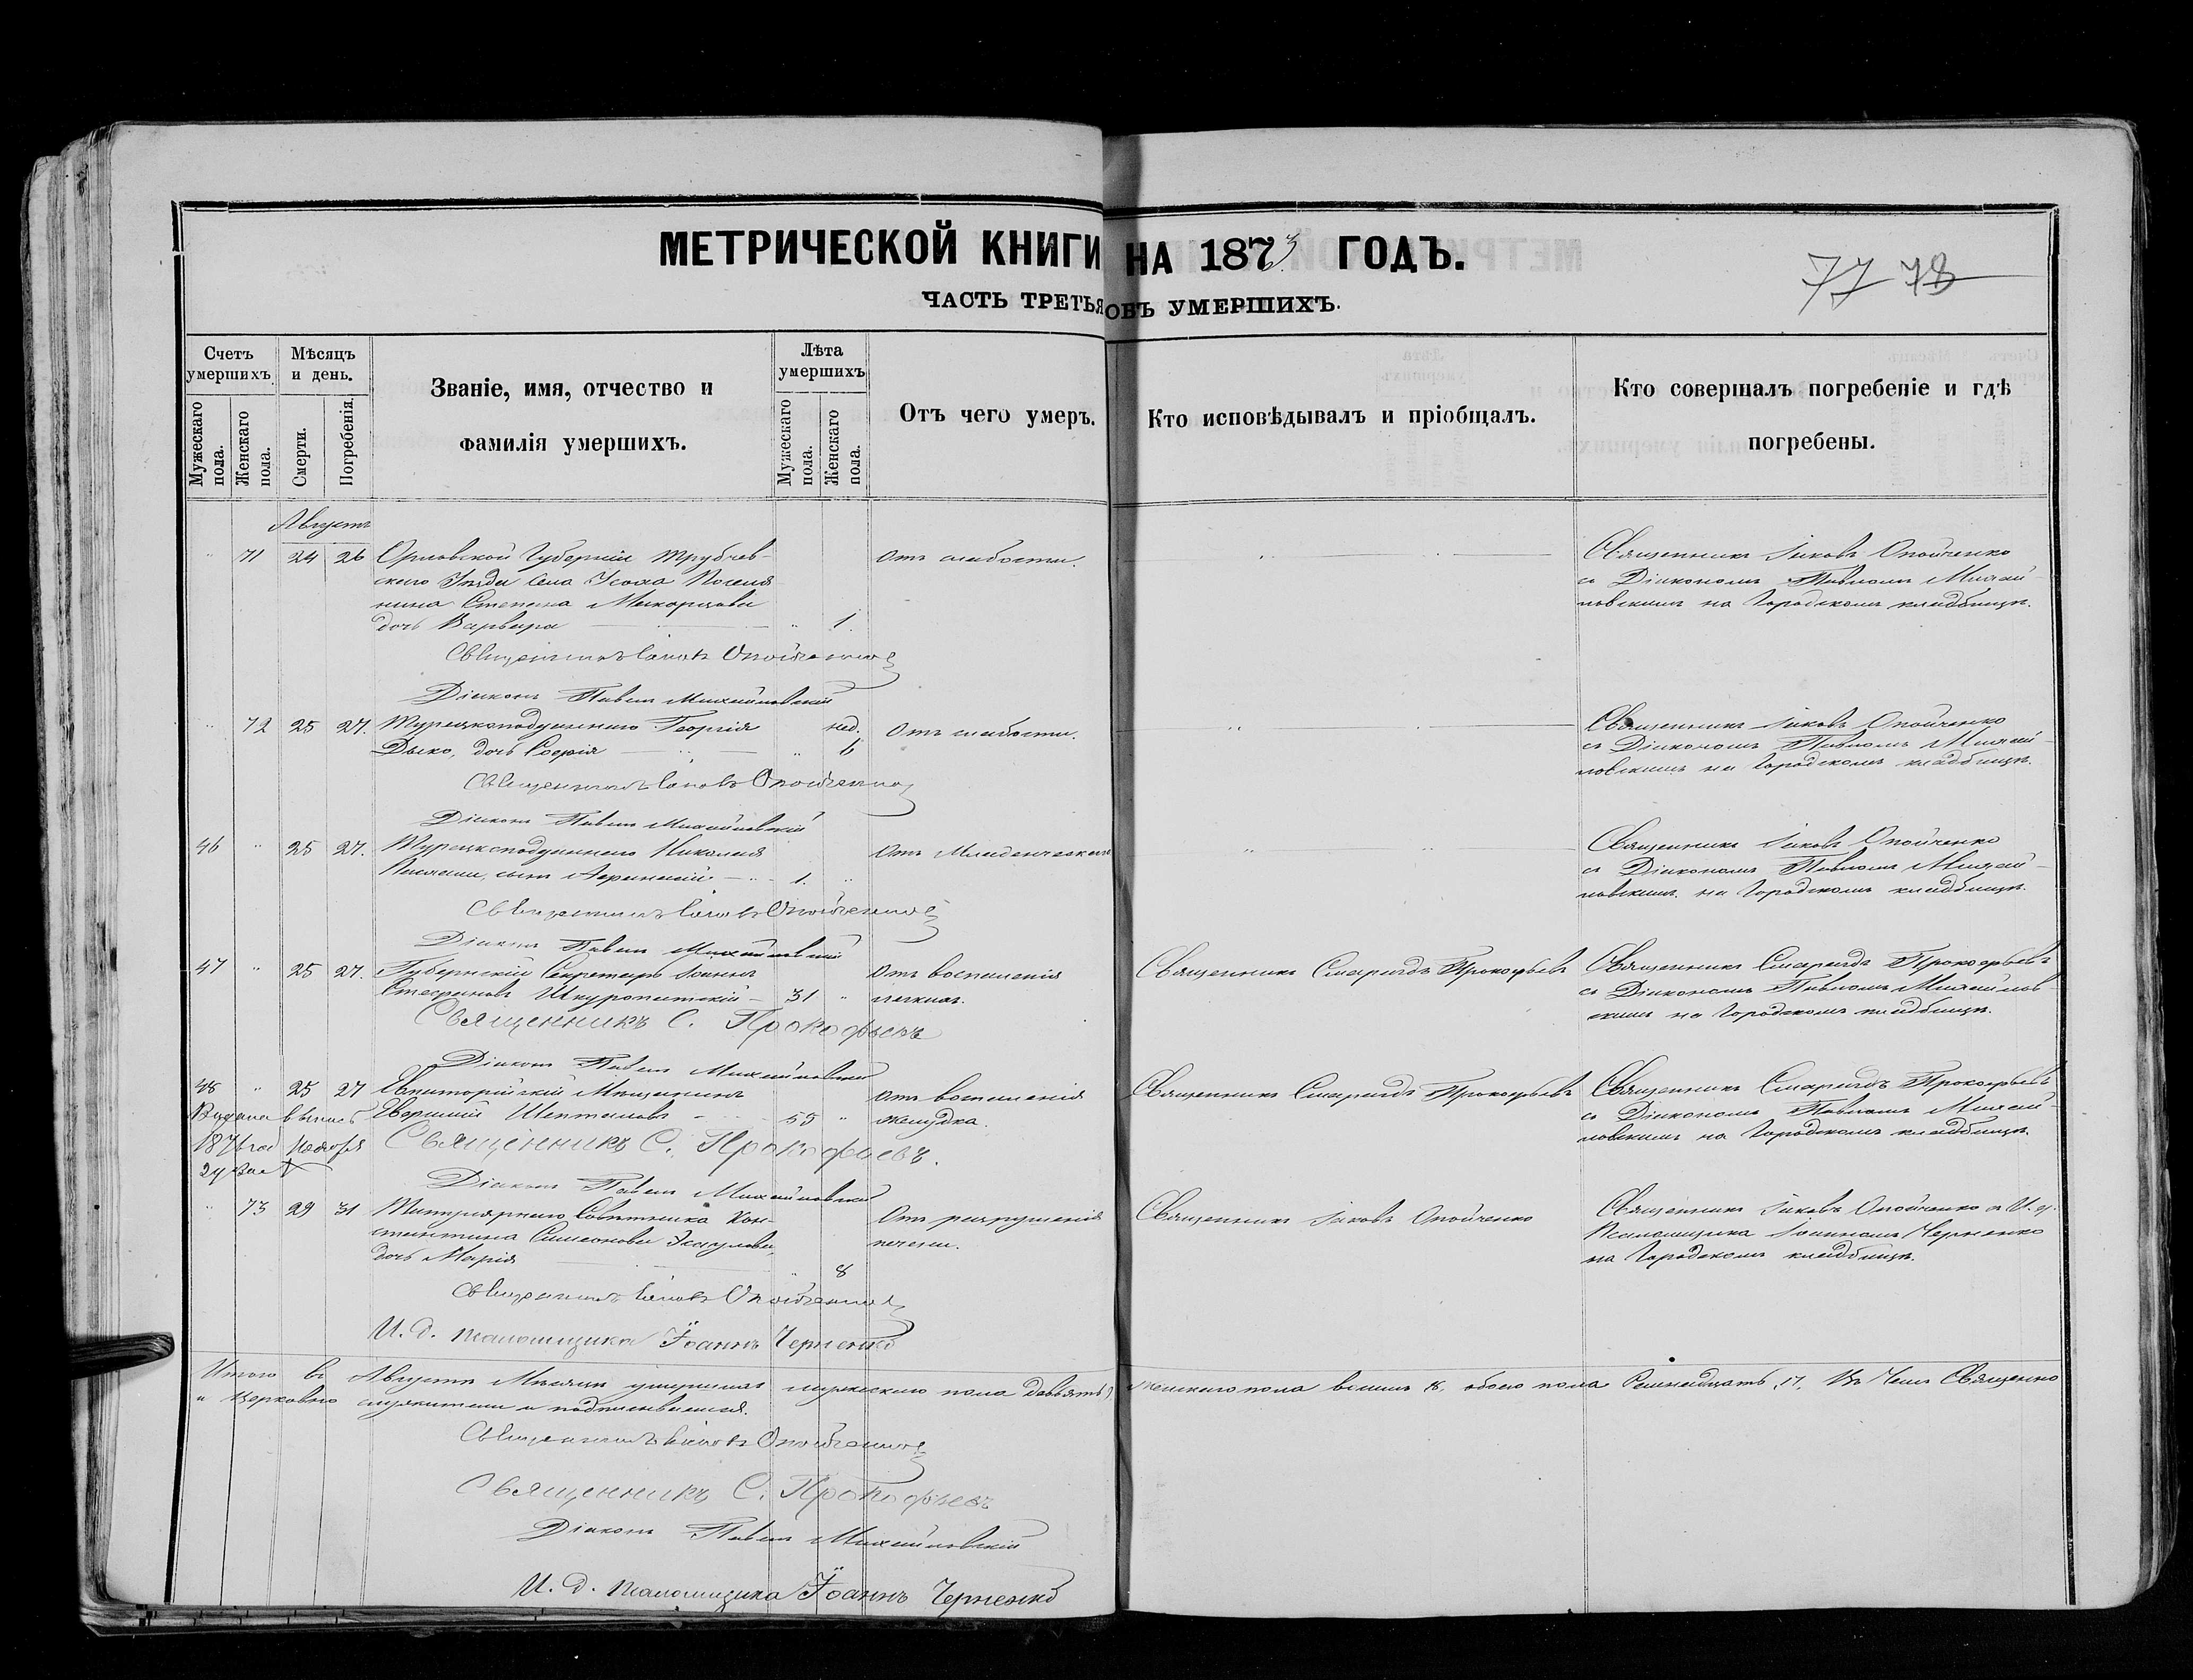 МЕТРИЧЕСКОЙ КНИГИ НА 1873 ГОДЪ.
77 78
ЧАСТЬ ТРЕТЬЯ ОБЪ УМЕРШИХЪ.
Счетъ умершихъ.
Мужескаго пола.
Женскаго пола.
Мѣсяцъ и день.
Смерти.
Погребенія.
Званіе, имя, отчество и фамилія умершихъ.
Лѣта умершихъ
Мужескаго пола.
Женскаго пола.
Отъ чего умеръ.
Кто исповѣдывалъ и пріобщалъ.
Кто совершалъ погребеніе и гдѣ погребены.
Августъ
" 71 24 26 Орловской Губерніи Трубчев
скаго Уѣзда Села Усоха Поселя
нина Степана
дочь Варвара " 1.
Отъ слабости.
Священникъ Іаковъ Опойченко
съ Діакономъ Павломъ Михай
ловскимъ на Городскомъ кладбищѣ.
Священникъ Іаковъ Опойченко
Діаконъ Павелъ Михайловскій
" 72 25 27. Турецкоподданнаго Георгія
Дыко, дочь Софія " нед. 6
Отъ слабости.
Священникъ Іаковъ Опойченко
съ Діакономъ Павломъ Михай
ловскимъ на Городскомъ кладбищѣ.
Священникъ Іаковъ Опойченко
Діаконъ Павелъ Михайловскій
46 " 25 27. Турецкоподданнаго Николая
сынъ 1. "
Отъ Младенческой
Священникъ Іаковъ Опойченко
съ Діакономъ Павломъ Михай
ловскимъ на Городскомъ кладбищѣ.
Священникъ Іаковъ Опойченко
Діаконъ Павелъ Михайловскій
47 " 25 27. Губернскій Секретарь Іоаннъ
Стефановъ Шкуропатскій 31 "
Отъ воспаленія
легкихъ.
Священникъ Смарагдъ Прокофьевъ
Священникъ Смарагдъ Прокофьевъ
съ Діакономъ Павломъ Михайлов
скимъ на Городскомъ кладбищѣ.
Священникъ С. Прокофьевъ
Діаконъ Павелъ Михайловскій
48 " 25 27 Евпаторійскій Мѣщанинъ
55 "
Отъ воспаленія
желудка.
Священникъ Смарагдъ Прокофьевъ
Священникъ Смарагдъ Прокофьевъ
съ Діакономъ Павломъ Михай
ловскимъ на Городскомъ кладбищѣ.
Священникъ С. Прокофьевъ.
Діаконъ Павелъ Михайловскій
" 73 29 31 Титулярнаго Совѣтника Кон
стантина Симеонова
дочь Марія " 8
Отъ разрушенія
печени.
Священникъ Іаковъ Опойченко
Священникъ Іаковъ Опойченко и И. д.
Псаломщика Іоанномъ Черненко
на Городскомъ кладбищѣ.
Священникъ Іаковъ Опойченко
И. д. псаломщика Іоаннъ Черненко
Итого въ Августѣ Мѣсяцѣ умершихъ мужескаго пола девять 9, женскаго пола восемь 8, обоего пола Семнадцать, 17, Въ Чемъ Священно
и Церковно служители и подписываемся.
Священникъ Іаковъ Опойченко
Священникъ С. Прокофьевъ
Діаконъ Павелъ Михайловскій
И. д. псаломщика Іоаннъ Черненко